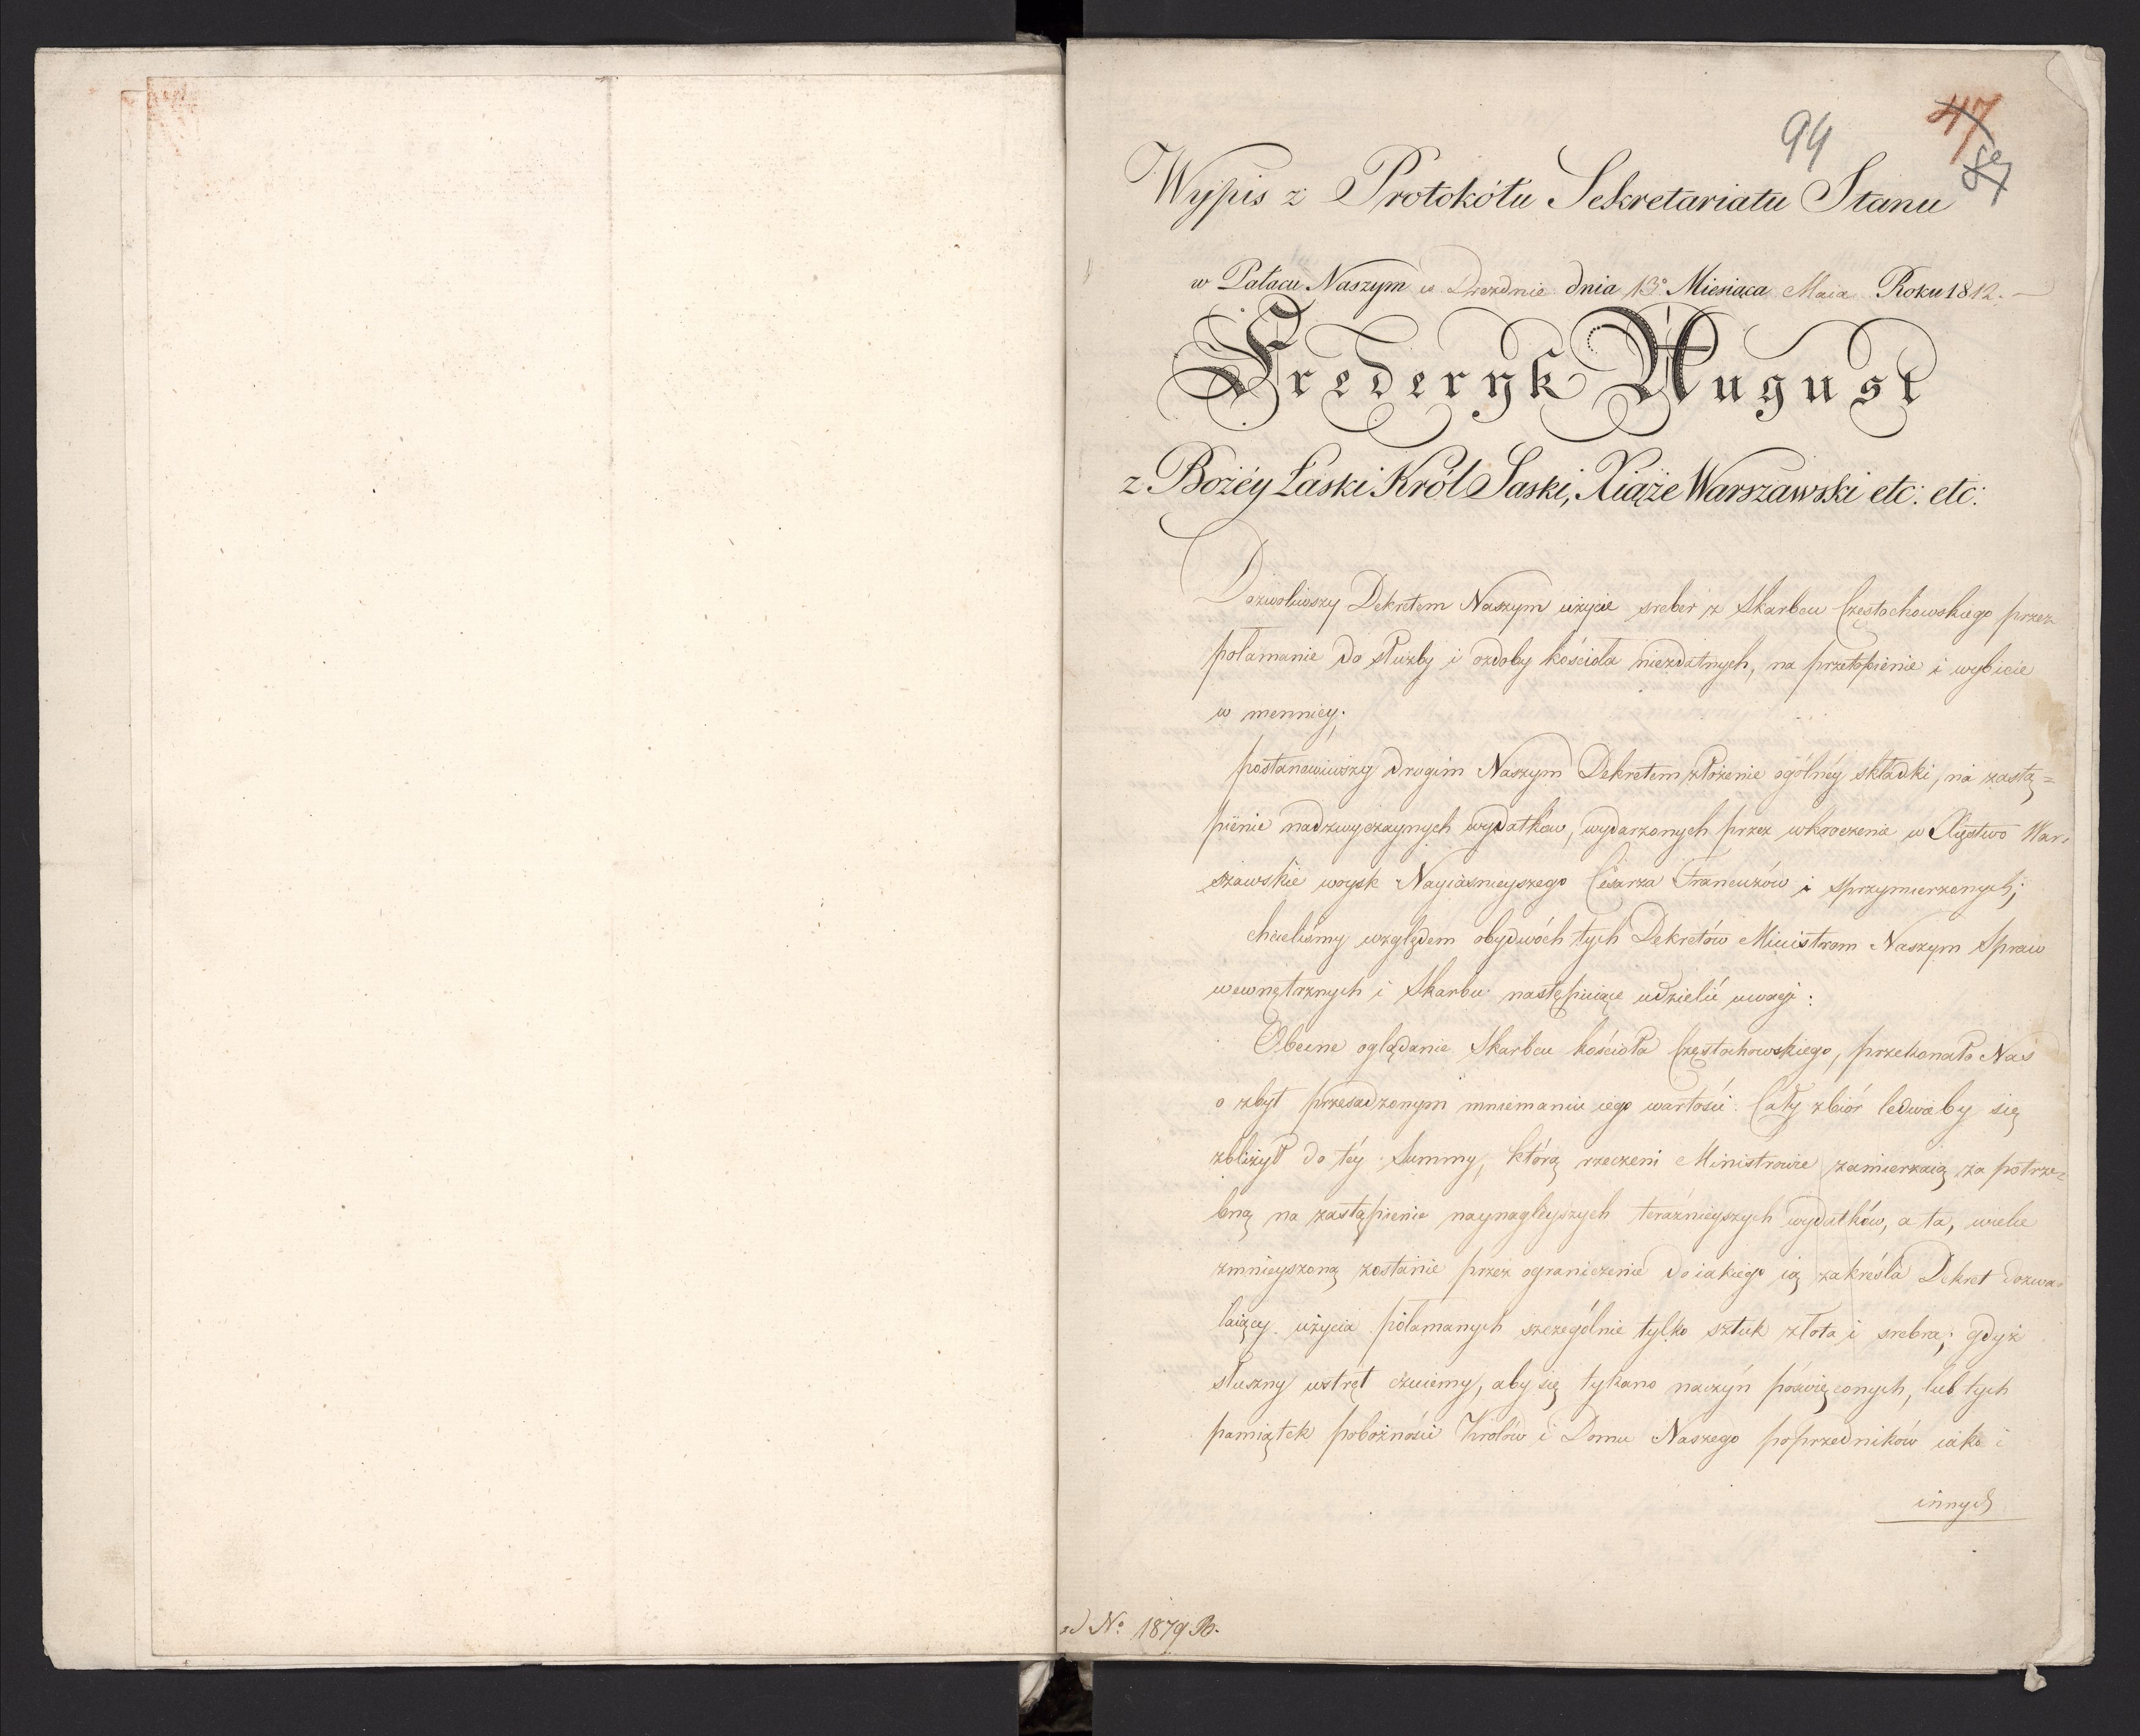 94
47
87
Wypis z Protokółu Sekretariatu Stanu
w Pałacu Naszym w Dreznie dnia 13° Miesiąca Maia Roku 1812. —
Frederyk August
z Bożéy Łaski Król Saski, Xiąże Warszawski etc: etc:
Dozwoliwszy Dekretem Naszym użycie sreber z Skarbcu Częstochowskiego przez
połamanie do służby i ozdoby kościoła niezdatnych, na przetopienie i wybicie
w mennicy;
postanowiwszy drugim Naszym Dekretem złożenie ogólnéy składki, na zastą=
pienie nadzwyczaynych wydatkow, wydarzonych przez wkroczenie w Xięstwo War,
szawskie woysk Nayiaśnieyszego Cesarza Francuzów i sprzymierzonych;
chcieliśmy względem obydwóch tych Dekretów Ministrom Naszym Spraw
wewnętrznych i Skarbu następuiące udzielić uwagi:
Obecne oglądanie Skarbcu kościoła Częstochowskiego, przekonało Nas
o zbyt przesadzonym mniemaniu iego wartości. Cały zbiór ledwieby się
zbliżył do téy Summy, którą rzeczeni Ministrowie zamierzaią za potrze-
bną na zastąpienie naynagleyszych teraźnieyszych wydatków, a ta, wiele
zmnieyszoną zostanie przez ograniczenie do iakiego ią zakreśla Dekret dozwa-
laiący użycia połamanych szczególnie tylko sztuk złota i srebra; gdyż
słuszny wstręt czuiemy, aby się tykano naczyń poświęconych, lub tych
pamiątek pobożności Królów i Domu Naszego poprzedników iako i
innych
ad N° 1879 B.